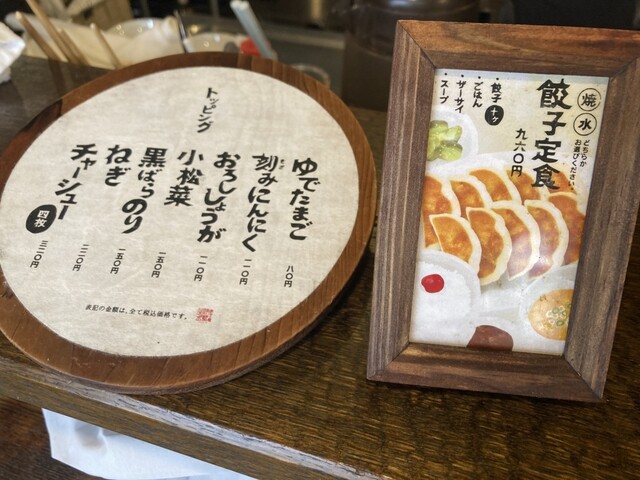 トッピング
ゆでたまご 八〇円
刻みにんにく 一一〇円
おろししょうが 一一〇円
小松菜 一五〇円
黒ばらのり 一五〇円
ねぎ 二二〇円
チャーシュー 四枚 三二〇円
表記の金額は、全て税込価格です。
焼 水 どちらか
お選びください。
餃子定食
九六〇円
・餃子 十ケ
・ごはん
・ザーサイ
・スープ